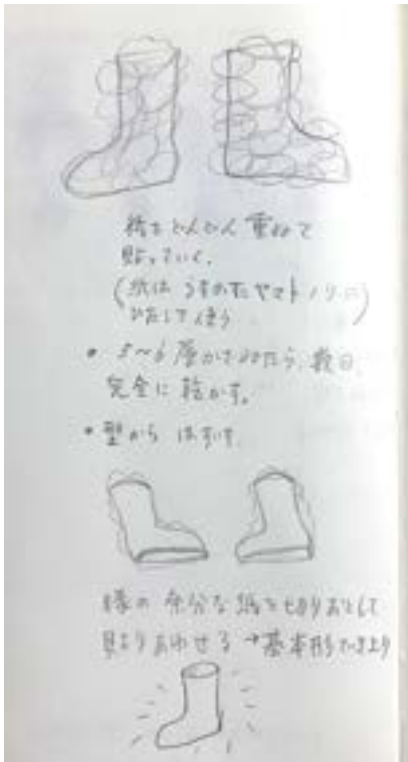 紙をどんどん重ねて
貼っていく。
(紙は うすめたヤマトノリに
ひたして使う)
• 5〜6層かさねたら、数日、
完全に乾かす。
• 型から はずす。
縁の余分な紙を切りおとして
貼りあわせる → 基本形できより